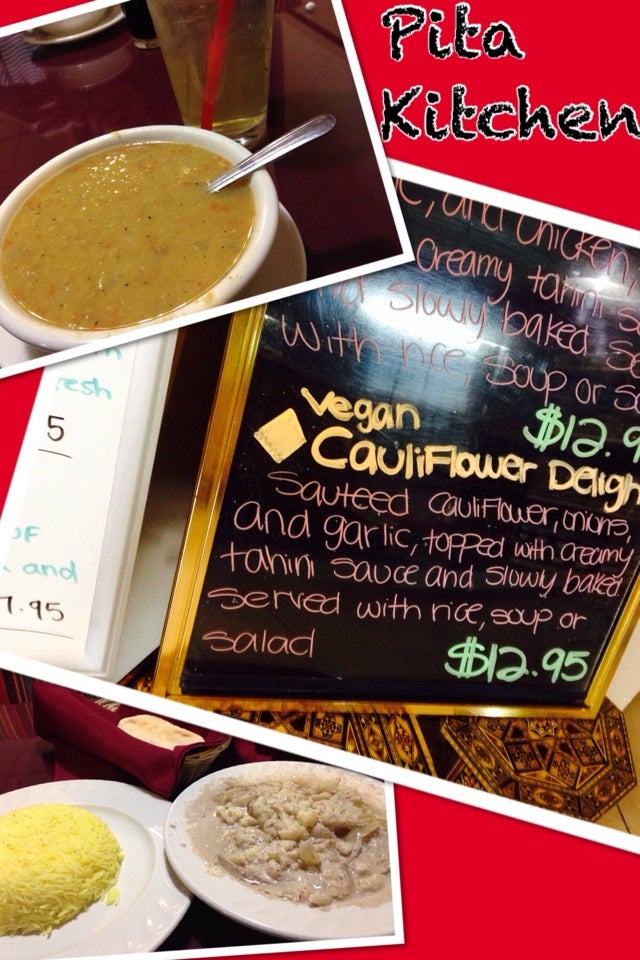 Pita
Kitchen
and chicken,
creamy tahini
slowly baked
with rice, soup or
$12.9
Vegan
Cauliflower Deligh
Sauteed cauliflower, onions,
and garlic, topped with creamy
tahini sauce and slowly baked
served with rice, soup or
salad
$12.95
resh
5
OF
and
7.95